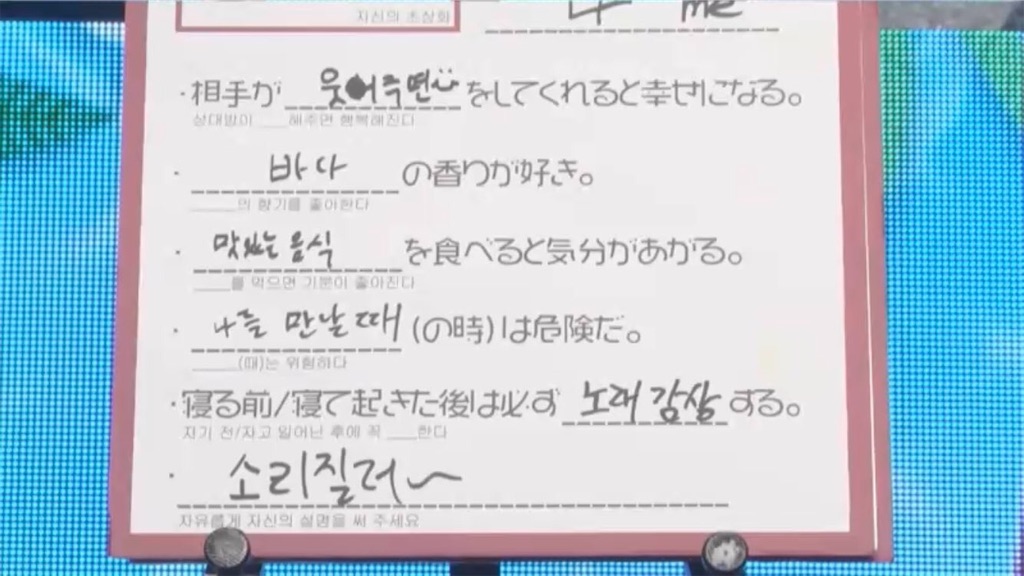 자신의 초상화
나 me
・相手が 웃어주면 をしてくれると幸せになる。
상대방이 ___해주면 행복해진다
・ 바다 の香りが好き。
___의 향기를 좋아한다
・ 맛있는 음식 を食べると気分があがる。
___를 먹으면 기분이 좋아진다
・ 나를 만날 때 (の時)は危険だ。
___(때)는 위험하다
・寝る前/寝て起きた後は必ず 노래 감상 する。
자기 전/자고 일어난 후에 꼭 ___한다
・ 소리질러~
자유롭게 자신의 설명을 써 주세요